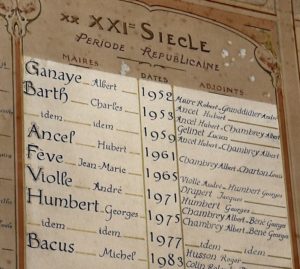 XX XXIe SIECLE
PERIODE REPUBLICAINE
MAIRES DATES ADJOINTS
Ganaye Albert 1952 Maire Robert Granddidier André
Barth Charles 1953 Ancel Hubert
idem idem 1959 Ancel Hubert Chambrey Albert
Gelinet Lucien
Ancel Hubert 1961 Ancel Hubert Chambrey Albert
Fève Jean-Marie 1965 Chambrey Albert Charton Louis
Violle André 1971 Violle André Humbert Georges
Drapert Jacques
Humbert Georges 1975 Humbert Georges
Chambrey Albert Bené Georges
idem idem 1977 Chambrey Albert Bené Georges
idem idem
Bacus Michel 1983 Husson Roger
Colin